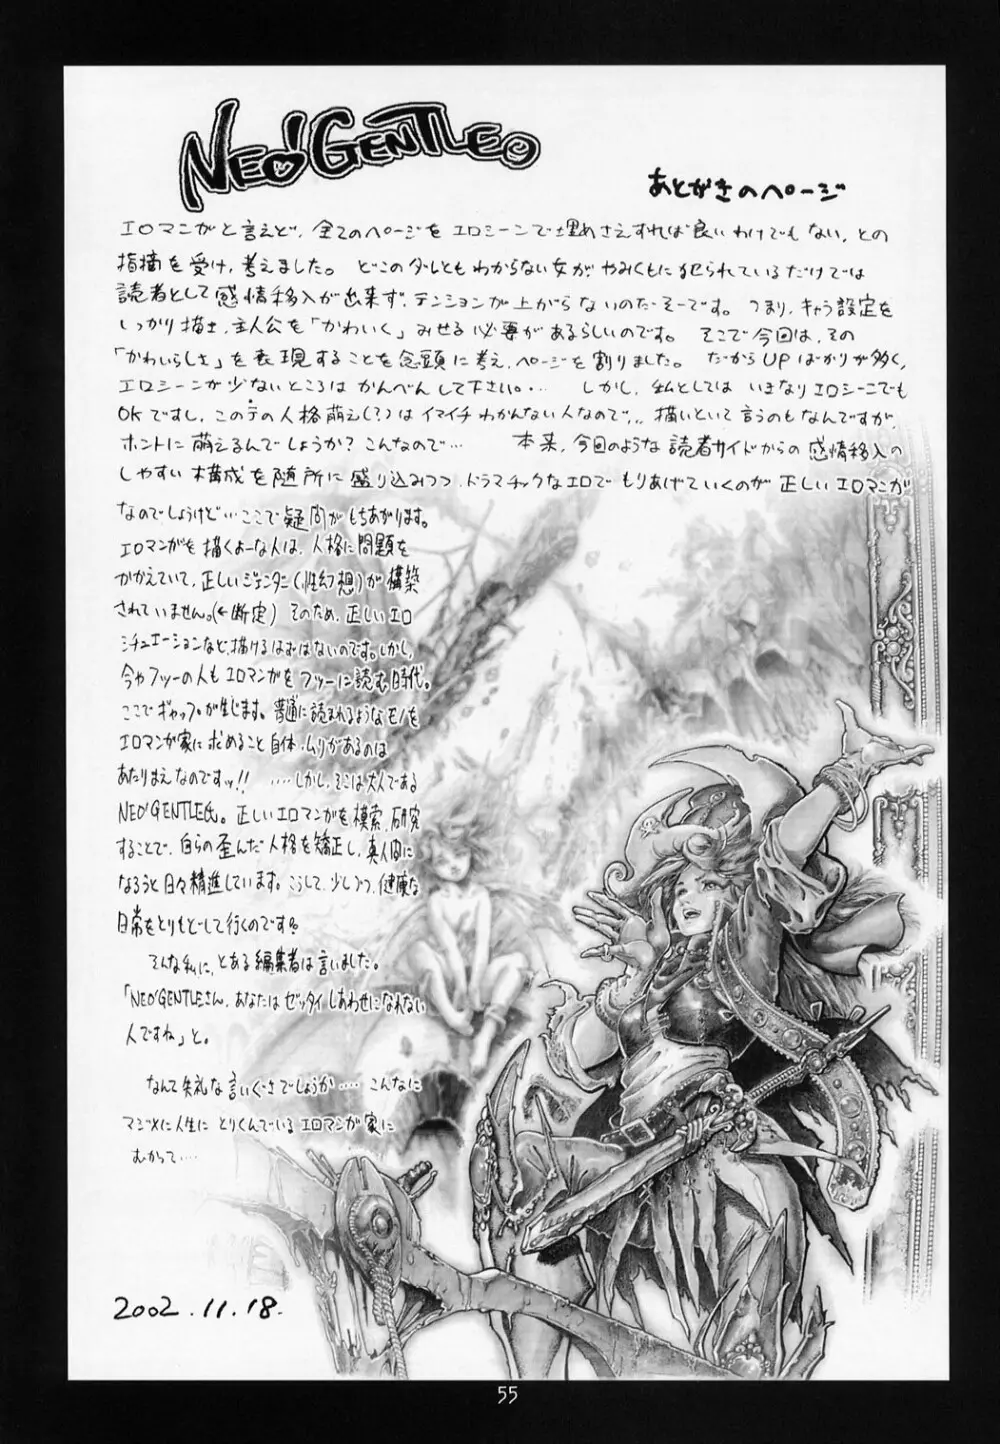 NEO'GENTLE
あとがきのページ
エロマンガと言えど、全てのページをエロシーンで埋めさえすれば良いわけでもない、との
指摘を受け、考えました。 どこのダレともわからない女がやみくもに犯られているだけでは
読者として感情移入が出来ず、テンションが上がらないのだそーです。つまり、キャラ設定を
しっかり描き、主人公を「かわいく」みせる必要があるらしいのです。 そこで今回は、その
「かわいらしさ」を表現することを念頭に考え、ページを割りました。 だからUPばかりが多く、
エロシーンが少ないところはかんべんして下さい。… しかし、私としては いきなりエロシーンでも
OKですし、この手の人格萌え(?)はイマイチわかんない人なので、、、描いといて言うのもなんですが、
ホントに萌えるんでしょうか?こんなので… 本来、今回のような読者サイドからの感情移入の
しやすい構成を随所に盛り込みつつ、ドラマチックなエロでもりあげていくのが正しいエロマンガ
なのでしょうけど…ここで疑問がもちあがります。
エロマンガを描くよーな人は、人格に問題を
かかえていて、正しいジェンダー(性幻想)が構築
されていません。(←断定) そのため、正しいエロ
シチュエーションなど、描けるはずはないのです。しかし、
今やフツーの人もエロマンガをフツーに読む時代。
ここでギャップが生じます。普通に読まれるようなモノを
エロマンガ家に求めること自体、ムリがあるのは
あたりまえなのですッ!! ……しかし、そこは大人である
NEO'GENTLE氏。正しいエロマンガを模索、研究
することで、自らの歪んだ人格を矯正し、真人間に
なろうと日々精進しています。こうして、少しづつ、健康な
日常をとりもどして行くのです。
そんな私に、とある編集者は言いました。
「NEO'GENTLEさん、あなたはゼッタイしあわせになれない
人ですね」と。
なんて失礼な言いぐさでしょうか…… こんなに
マジメに人生にとりくんでいるエロマンガ家に
むかって…
2002.11.18.
55